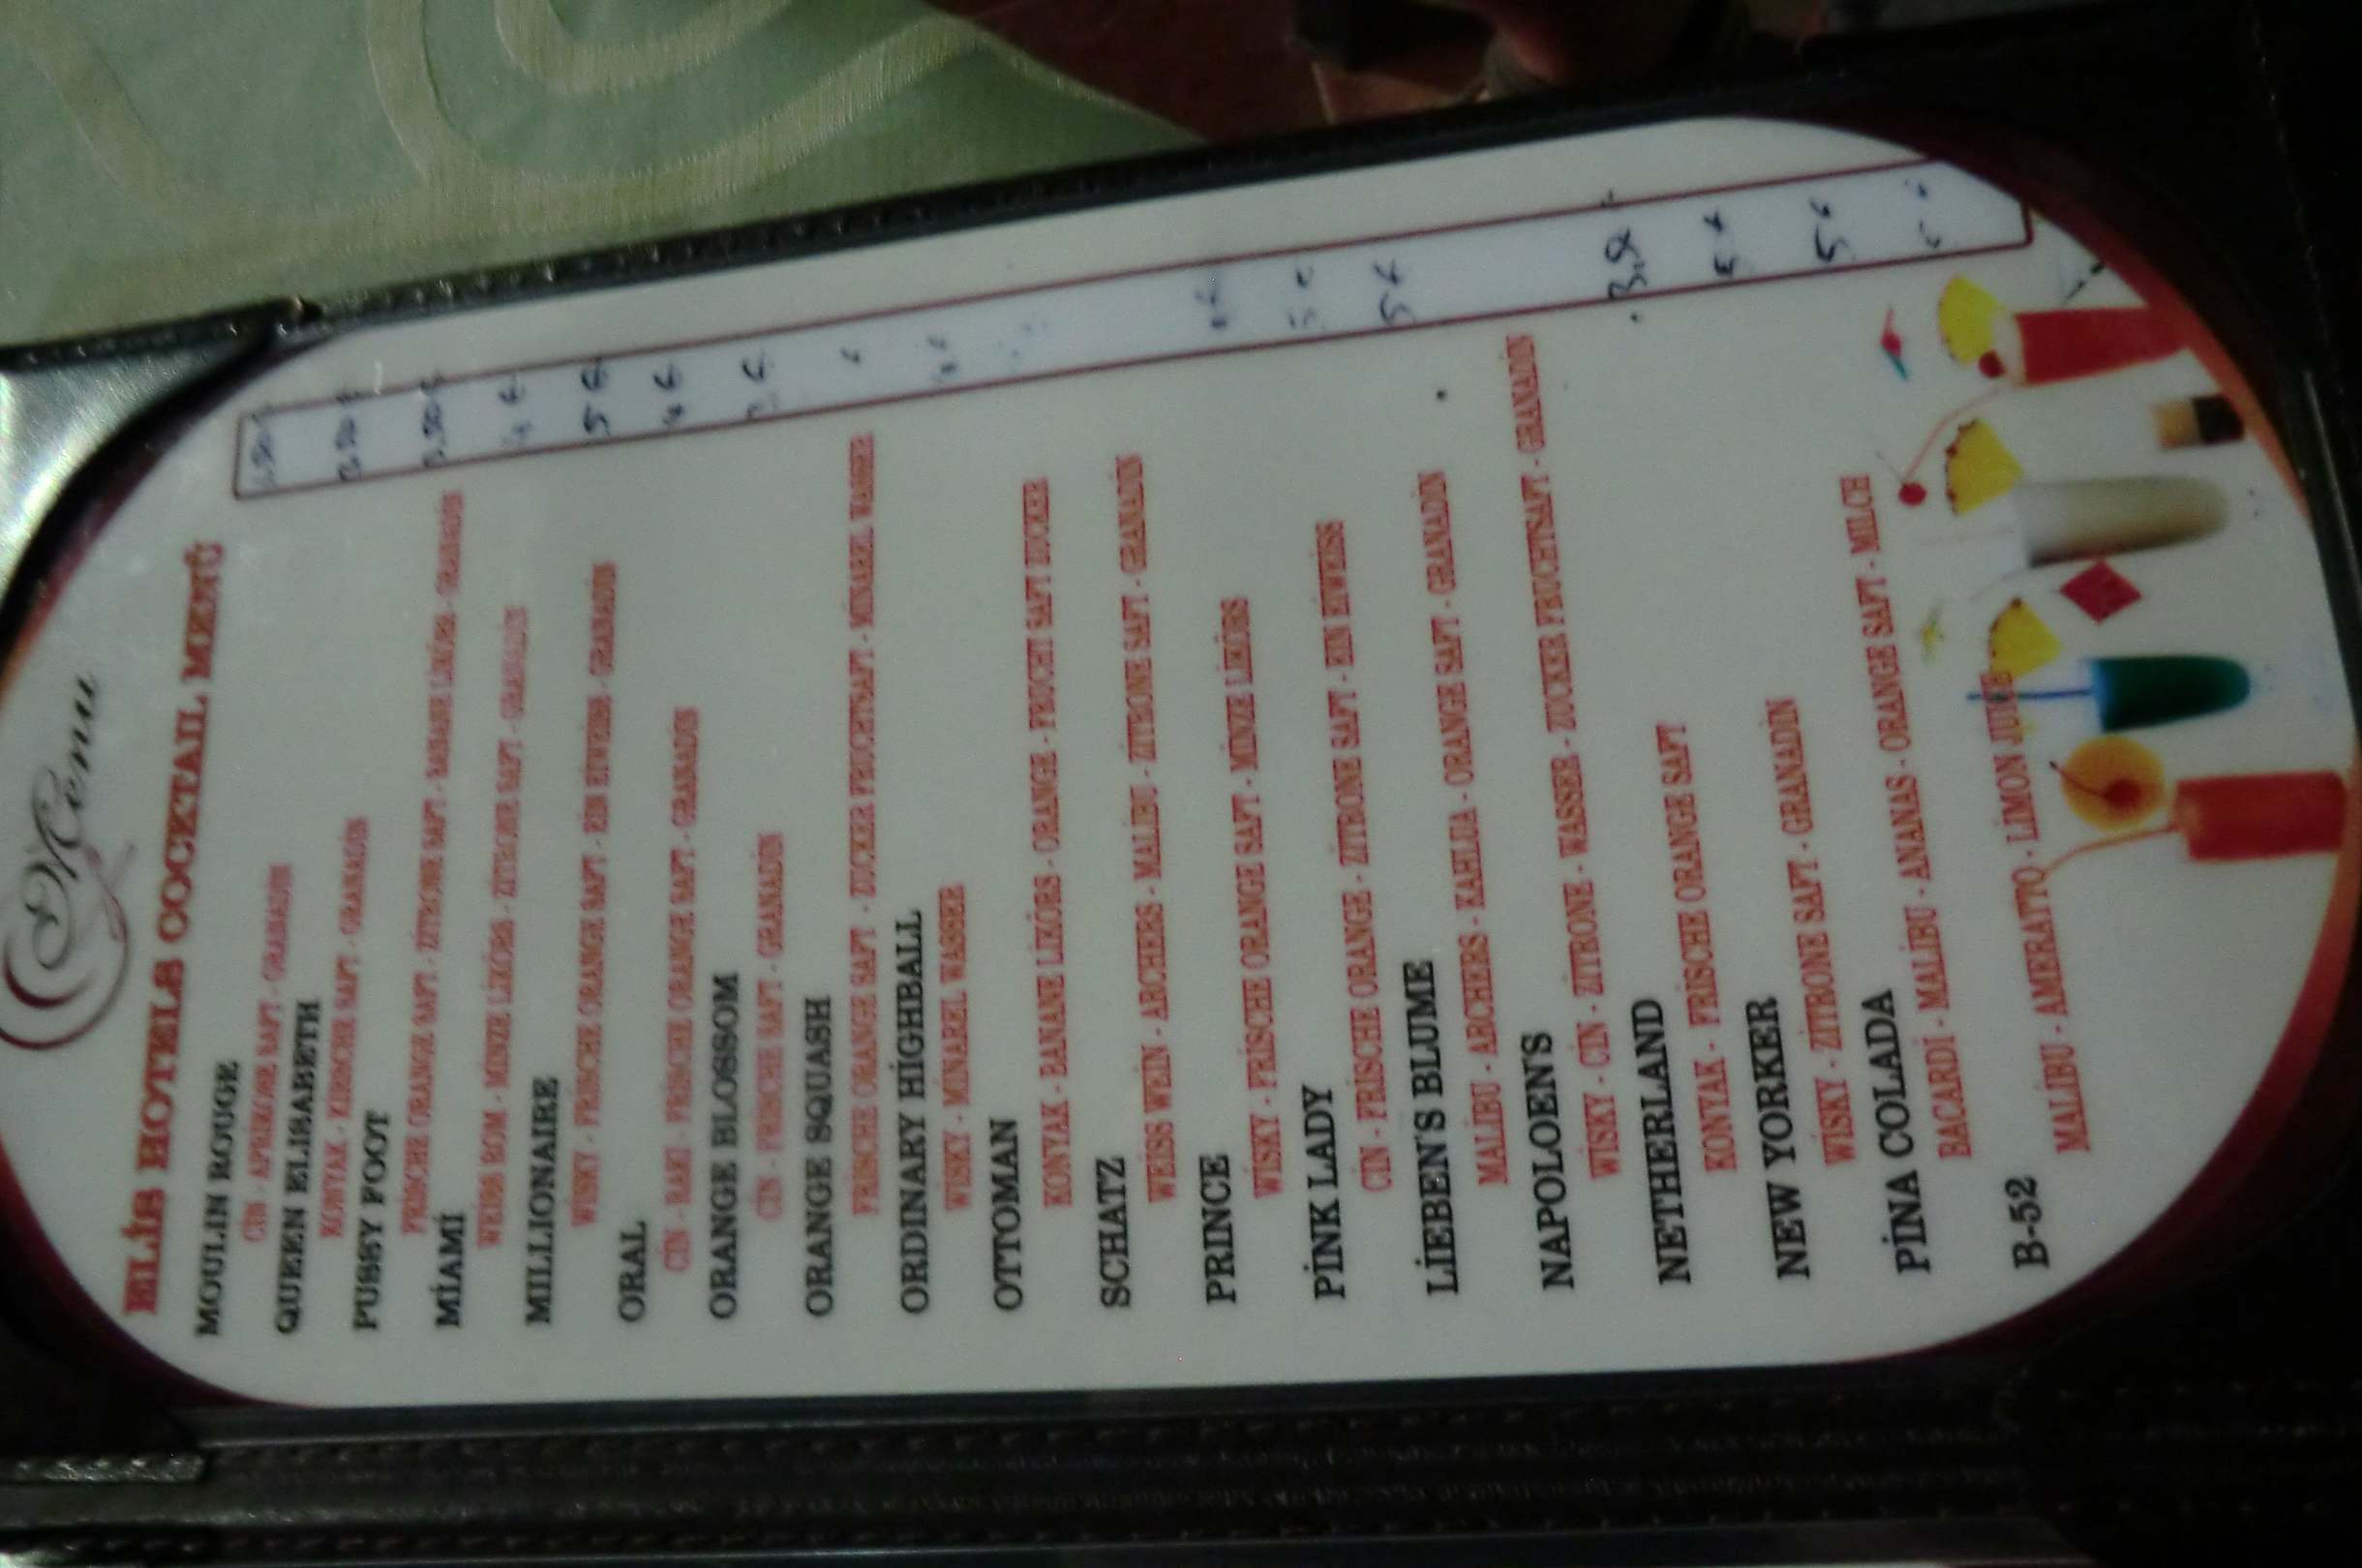 Menu
ELİS HOTELS COCKTAIL MENÜ
MOULIN ROUGE
CİN - APRIKOSE SAFT - GRANADİN
QUEEN ELISABETH
KONYAK - KIRSCHE SAFT - GRANADİN
PUSSY FOOT
FRİSCHE ORANGE SAFT - ZİTRONE SAFT - BANANE LİKÖRS - GRANADİN
MİAMİ
WEISS ROM - MINZE LİKÖRS - ZITRONE SAFT - GRANADİN
MILLIONAIRE
WISKY - FRISCHE ORANGE SAFT - EİN EİWEİSS - GRANADİN
5 €
ORAL
CİN - RAKI - FRİSCHE ORANGE SAFT - GRANADİN
4 €
ORANGE BLOSSOM
CİN - FRISCHE SAFT - GRANADİN
ORANGE SQUASH
FRİSCHE ORANGE SAFT - ZUCKER FRUCHTSAFT - MİNAREL WASSER
ORDINARY HİGHBALL
WISKY - MİNAREL WASSER
OTTOMAN
KONYAK - BANANE LİKÖRS - ORANGE - FRUCHT SAFT ZUCKER
SCHATZ
WEISS WEİN - ARCHERS - MALİBU - ZİTRONE SAFT - GRANADİN
PRINCE
WİSKY - FRİSCHE ORANGE SAFT - MİNZE LİKÖRS
PİNK LADY
CİN - FRİSCHE ORANGE - ZİTRONE SAFT - EIN EIWEISS
5 €
LİEBEN'S BLUME
MALİBU - ARCHERS - KAHLUA - ORANGE SAFT - GRANADİN
NAPOLOEN'S
WİSKY - CİN - ZİTRONE - WASSER - ZUCKER FRUCHTSAFT - GRANADİN
NETHERLAND
KONYAK - FRİSCHE ORANGE SAFT
NEW YORKER
WİSKY - ZİTRONE SAFT - GRANADİN
PİNA COLADA
BACARDİ - MALİBU - ANANAS - ORANGE SAFT - MILCH
5 €
B-52
MALİBU - AMERATTO - LİMON JUICE